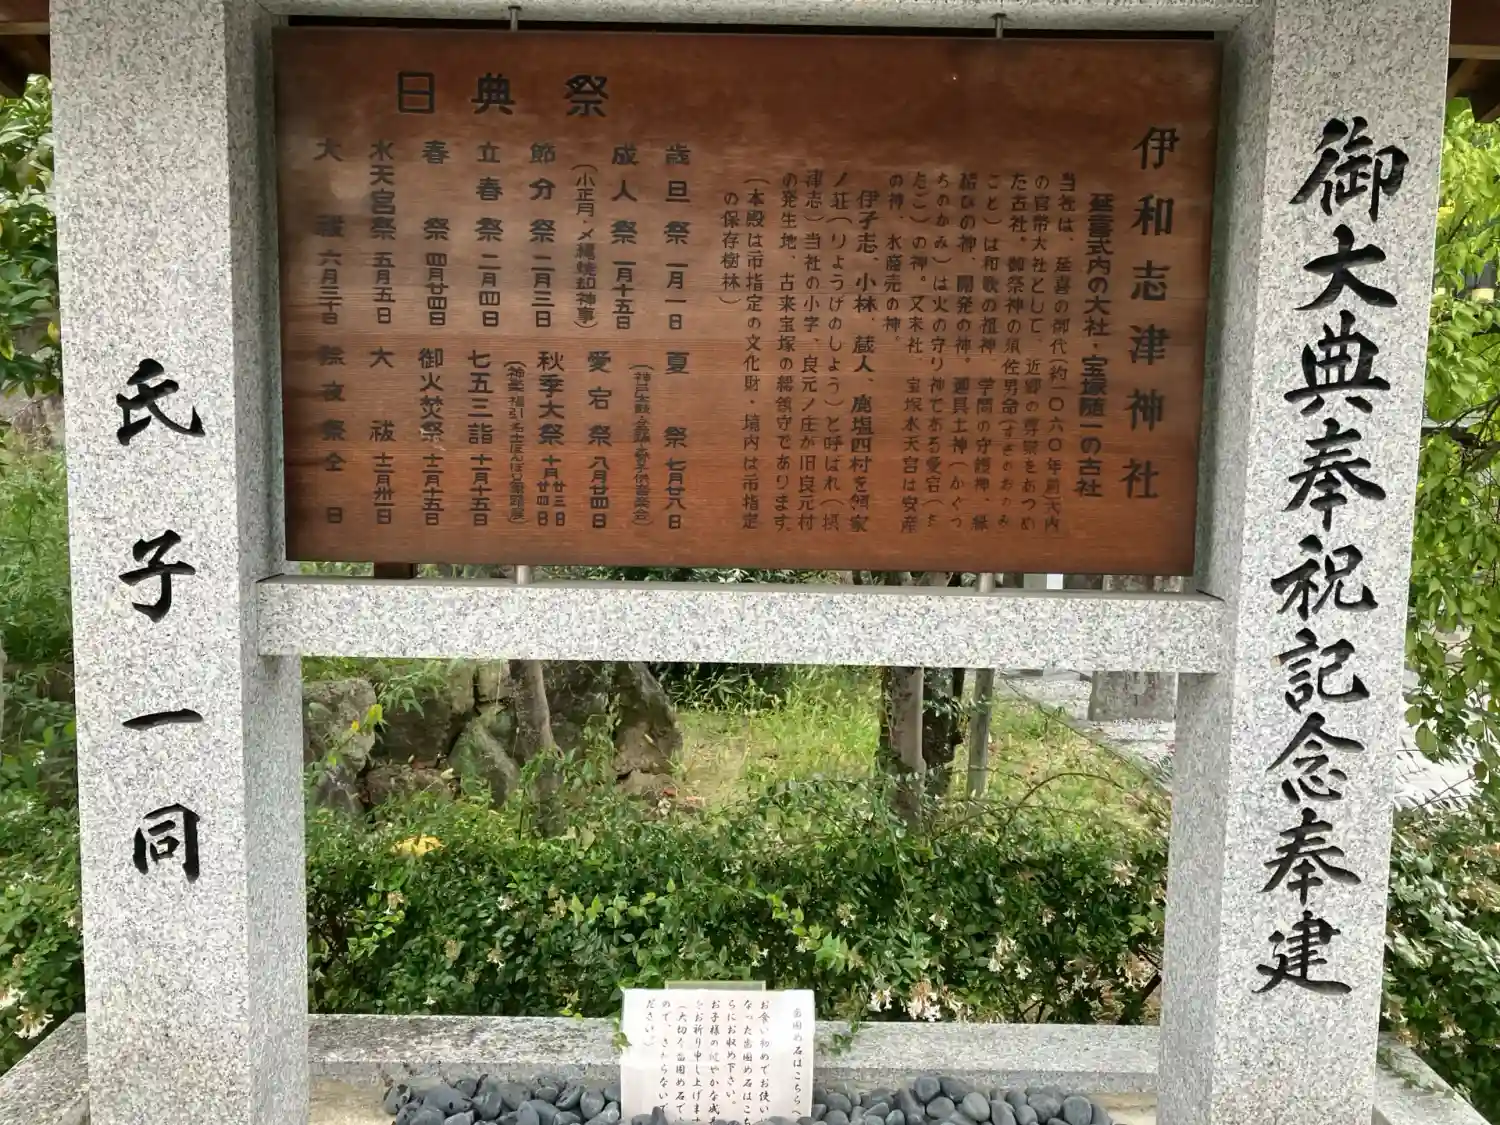 御大典奉祝記念奉建
伊和志津神社
延喜式内の大社・宝塚随一の古社
当社は、延喜の御代(約一〇六〇年前)式内
の官幣大社として、近郷の尊崇をあつめ
た古社。御祭神の須佐男命(すさのおのみ
こと)は和歌の祖神、学問の守護神、縁
結びの神、開発の神。迦具土神(かぐつ
ちのかみ)は火の守り神である愛宕(あ
たご)の神。又末社 宝塚水天宮は安産
の神、水商売の神。
伊孑志、小林、蔵人、鹿塩四村を領家
ノ荘(りょうけのしょう)と呼ばれ(摂
津志)当社の小字、良元ノ庄が旧良元村
の発生地、古来宝塚の総領守であります。
(本殿は市指定の文化財・境内は市指定
の保存樹林)
祭典日
歳旦祭 一月一日
成人祭 一月十五日
(小正月・〆縄焼却神事)
節分祭 二月三日
立春祭 二月四日
春祭 四月廿四日
水天宮祭 五月五日
大祓 六月三十日
夏祭 七月廿八日
愛宕祭 八月廿四日
秋季大祭 十月廿三日 廿四日
七五三詣 十一月十五日
御火焚祭 十二月十五日
大祓 十二月卅一日
除夜祭 全日
氏子一同
歯固め石はこちらへ
お食い初めでお使い
なった歯固め石はこち
らにお収め下さい。
お子様の健やかな成長
をお祈り申し上げます
(大切な歯固め石です
ので、さわらないで
ださい。)